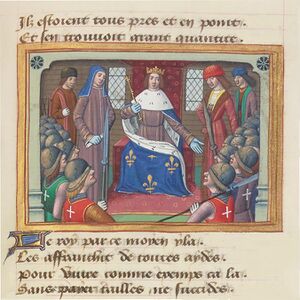 Ilz estoient tous pres et en point
Et sen trouvoit grant quantite
Le roy par ce moyen yla
Les affranchit de toutes aydes
Pour vivre comme exemps ca la
Sans payer tailles ne succides